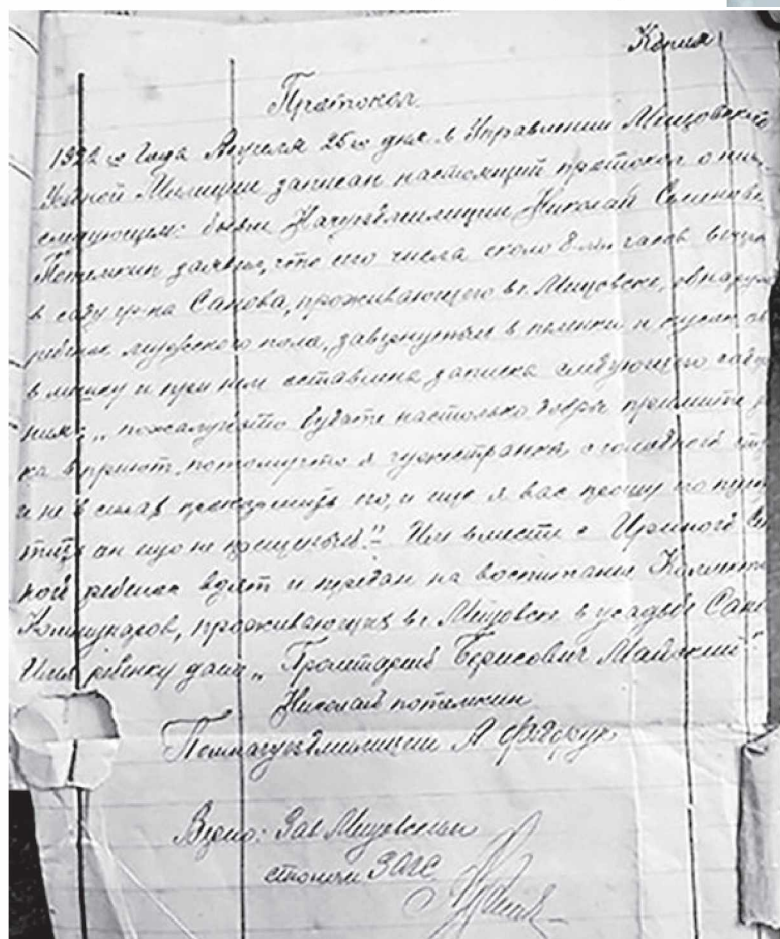 Копия
Протокол
1922 го Года Апреля 25 го дня в Управлении Мещовской
Уездной Милиции записан настоящий протокол о ни
следующем: бывш Начуездмилиции Николай Семенов
Потемкин заявил, что сего числа около 8 ми часов вечер
в саду гр-на Санова, проживающего в г. Мещовске, обнаруж
ребенок мужского пола, завернутый в пеленки и кусок
в мешку и при нем оставлена записка следующего содер
ния: „пожалуйсто будьте настолько добры примите
ка в приют, потомучто я чужестранка с голодной
и не в силах прокормить его, и еще я вас прошу
он ищо не крещеный". Им вместе с Ириной
кой ребенок взят и передан на воспитание
Коммунаров, проживающих в г. Мещовске в усадьбе Сан
Имя ребенку дано „Пролетарий Борисович Майский"
Николай потемкин
Помначуездмилиции А
Верно: Зав Мещовским
столом ЗАГС